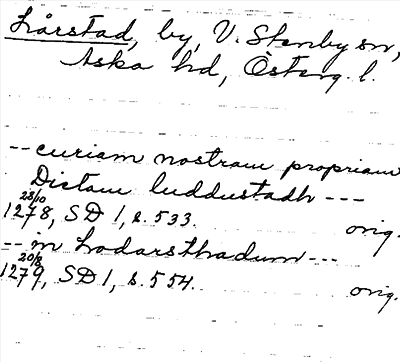 Lårstad, by, V. Stenby sn,
Aska hd, Österg. l.
-- curiam nostram propriam
Dictam luddustadh ---
1278, 28/10 SD 1, s. 533. orig.
-- in Lodarsthadum ---
1279, 20/8 SD 1, s. 554. orig.